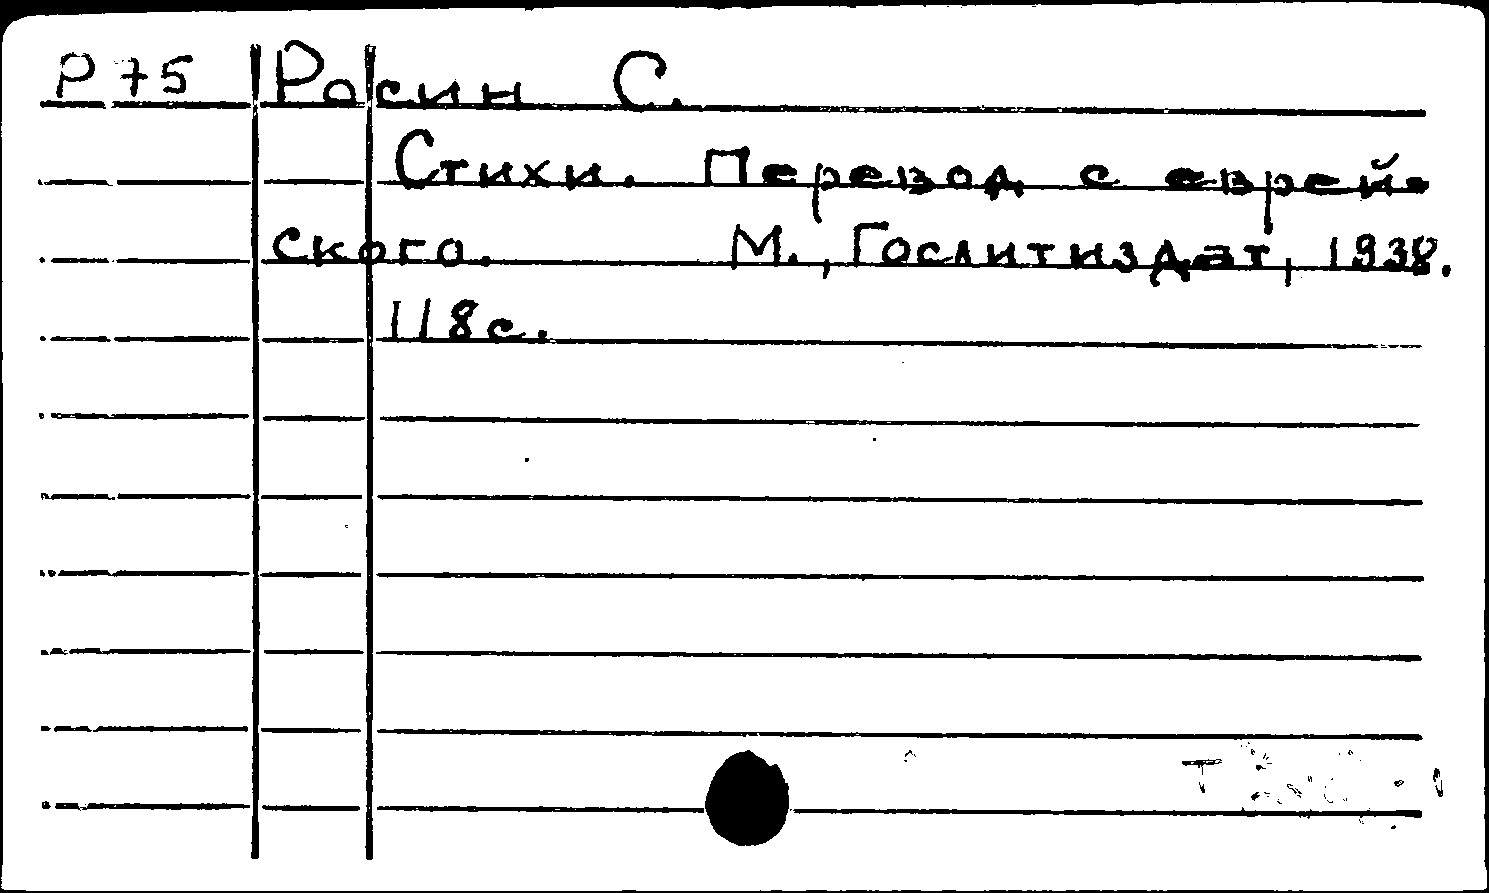 Р 75 Росин С.
Стихи. Перевод с еврей-
ского. М., Гослитиздат, 1938.
118 с.